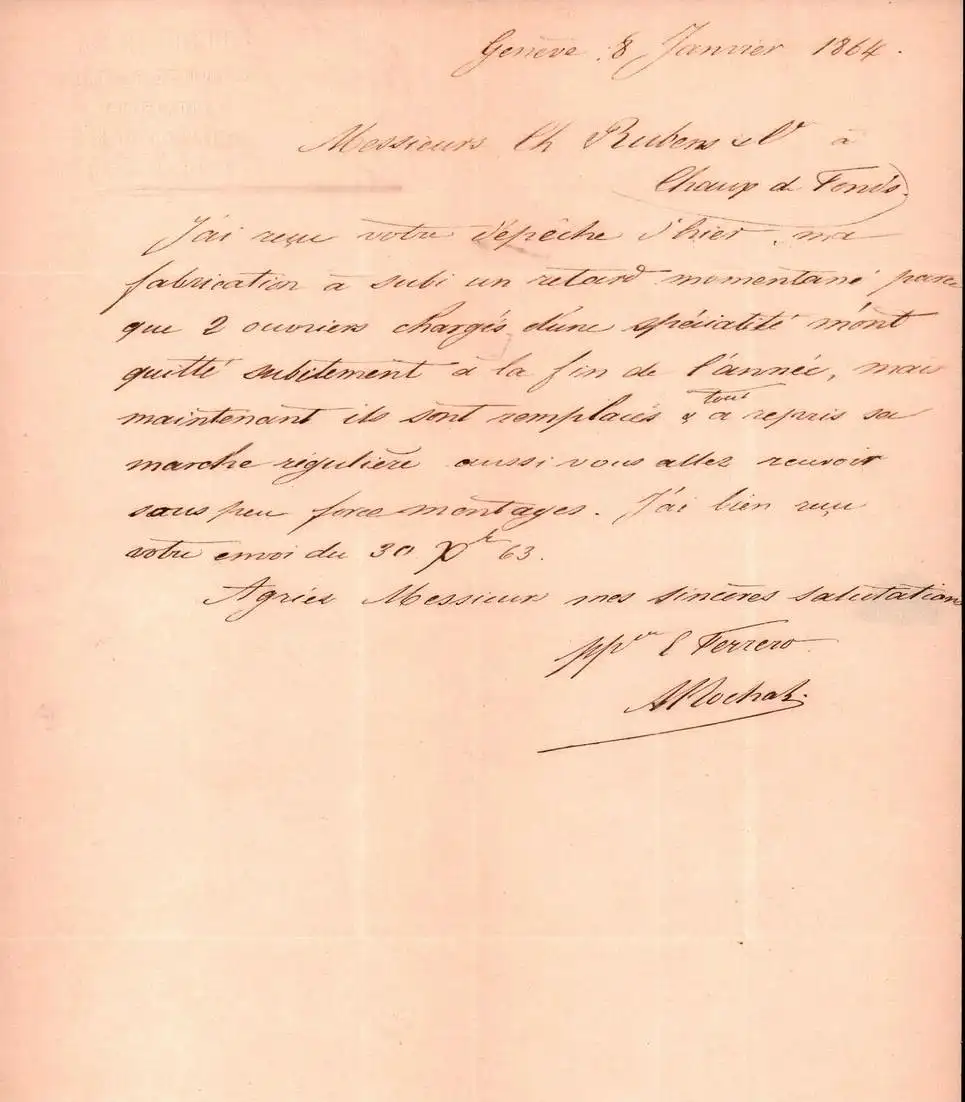 Genève 8 Janvier 1864.
Messieurs Ch Rubens & Cº à
Chaux de Fonds.
J'ai reçu votre dépêche d'hier, ma
fabrication à subi un retard momentané parce
que 2 ouvriers chargés d'une spécialité m'ont
quitté subitement à la fin de l'année, mais
maintenant ils sont remplacés & tout a repris sa
marche régulière aussi vous allez recevoir
sous peu force montages. J'ai bien reçu
votre envoi du 30 Xbr 63.
Agréez Messieurs mes sincères salutations
E Ferrero
A Rochat